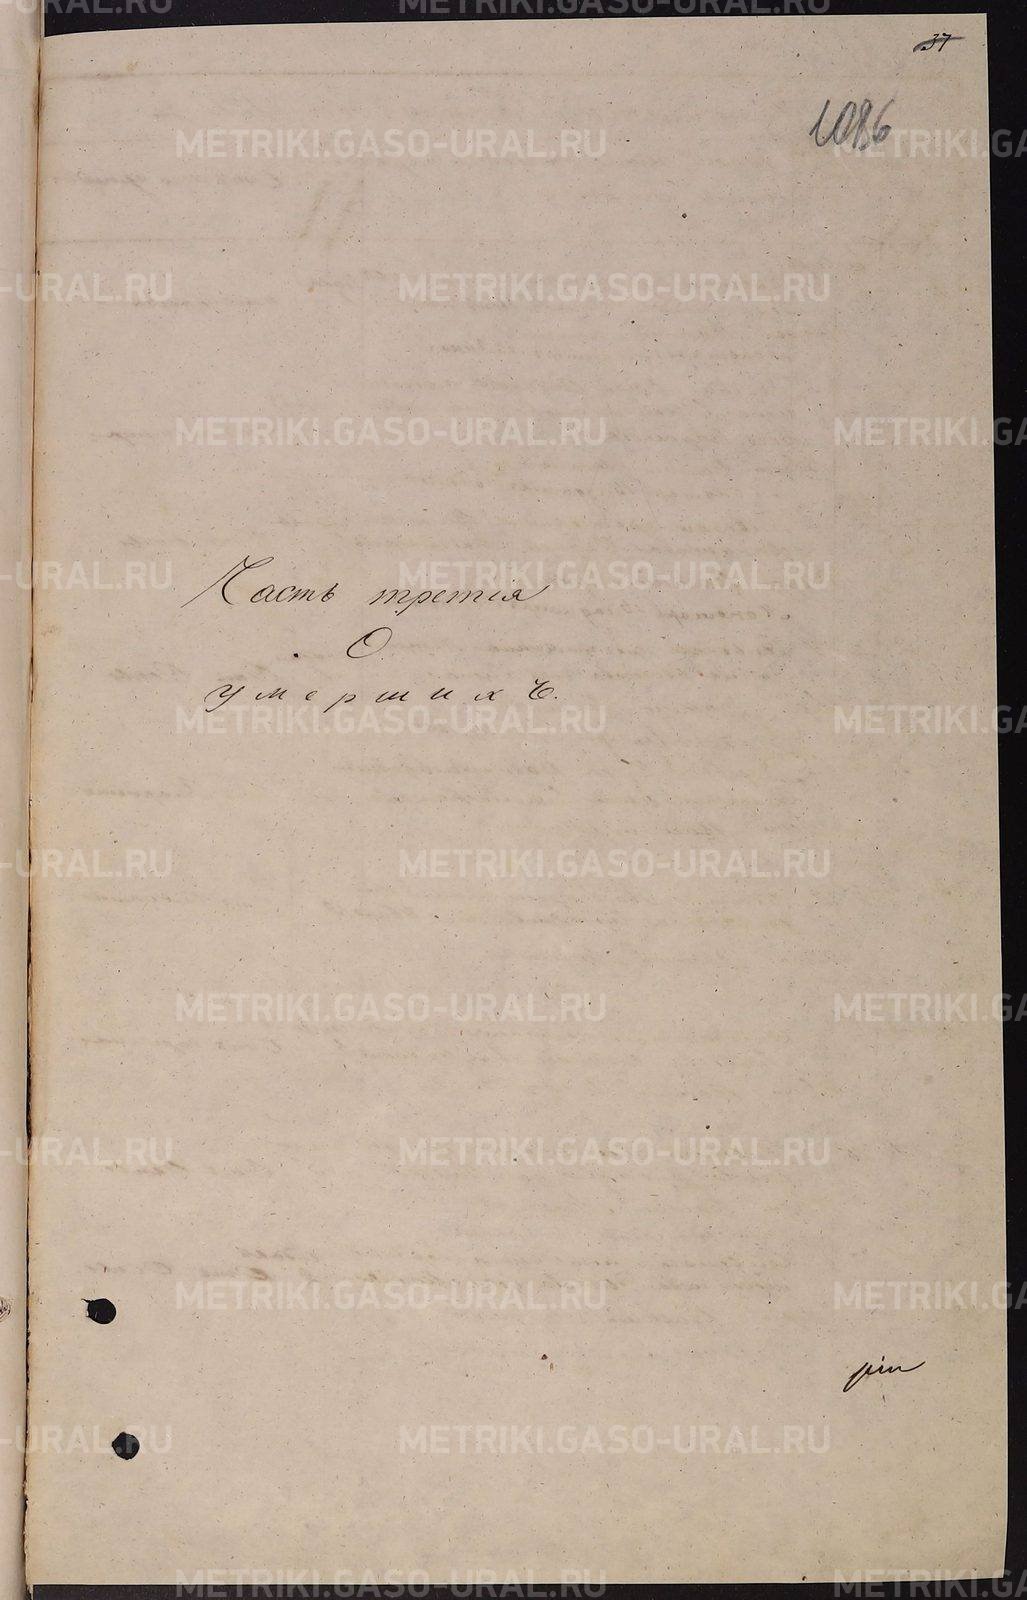 37
1086
Часть третія
О
умершихъ.
METRIKI.GASO-URAL.RU